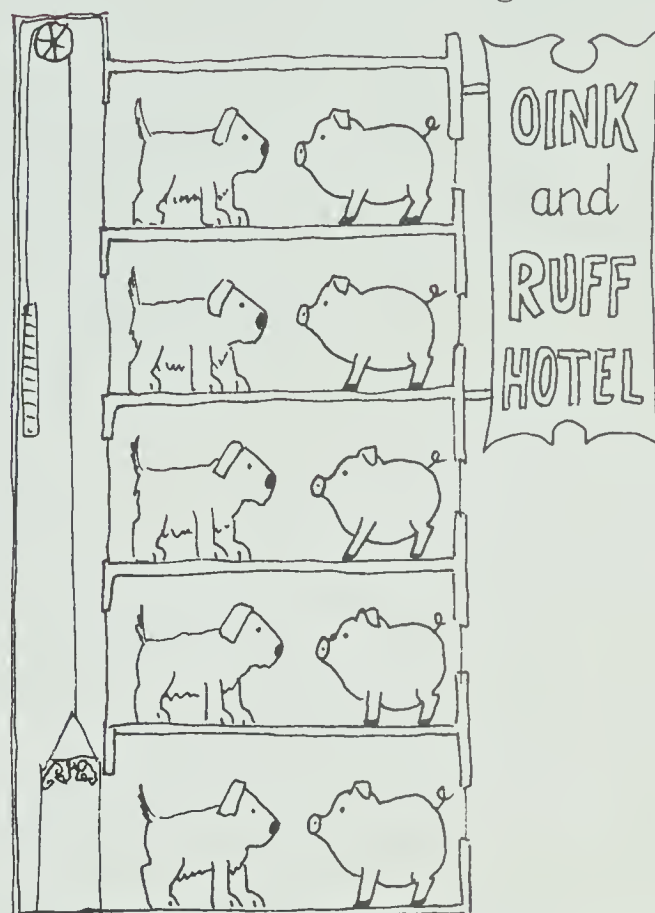 OINK
and
RUFF
HOTEL